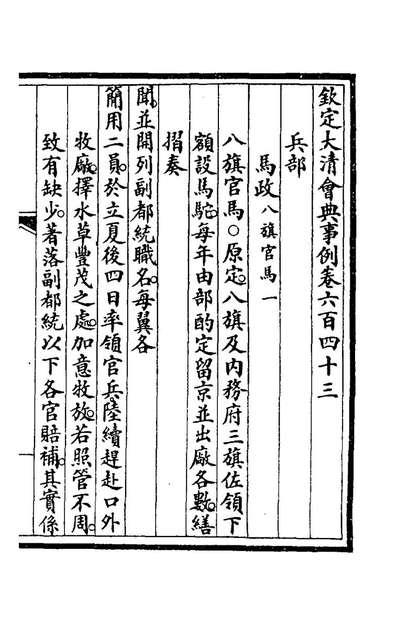 欽定大清會典事例卷六百四十三
兵部
馬政八旗官馬一
八旗官馬○原定。八旗及內務府三旗佐領下
額設馬駝。每年由部酌定留京並出廠各數。繕
摺奏
聞。並開列副都統職名。每翼各
簡用二員。於立夏後四日率領官兵。陸續趕赴口外
牧廠。擇水草豐茂之處。加意牧放。若照管不周。
致有缺少。著落副都統以下各官賠補。其實係